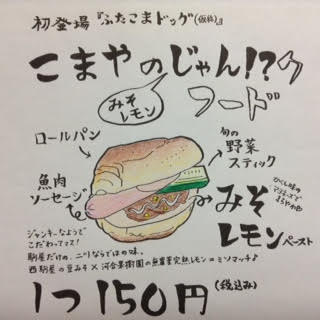 初登場『ふたこまドッグ(仮称)』
こまやのじゃん!?ク
フード
みそ
レモン
ロールパン
旬の
野菜
スティック
魚肉
ソーセージ
みそ
レモンペースト
ジャンキーなようで
こだわってマス!
駒屋だけの、二川ならではの味。
西駒屋の豆みそ×河合果樹園の無農薬完熟レモン=ミソマッチ♪
1つ150円(税込み)